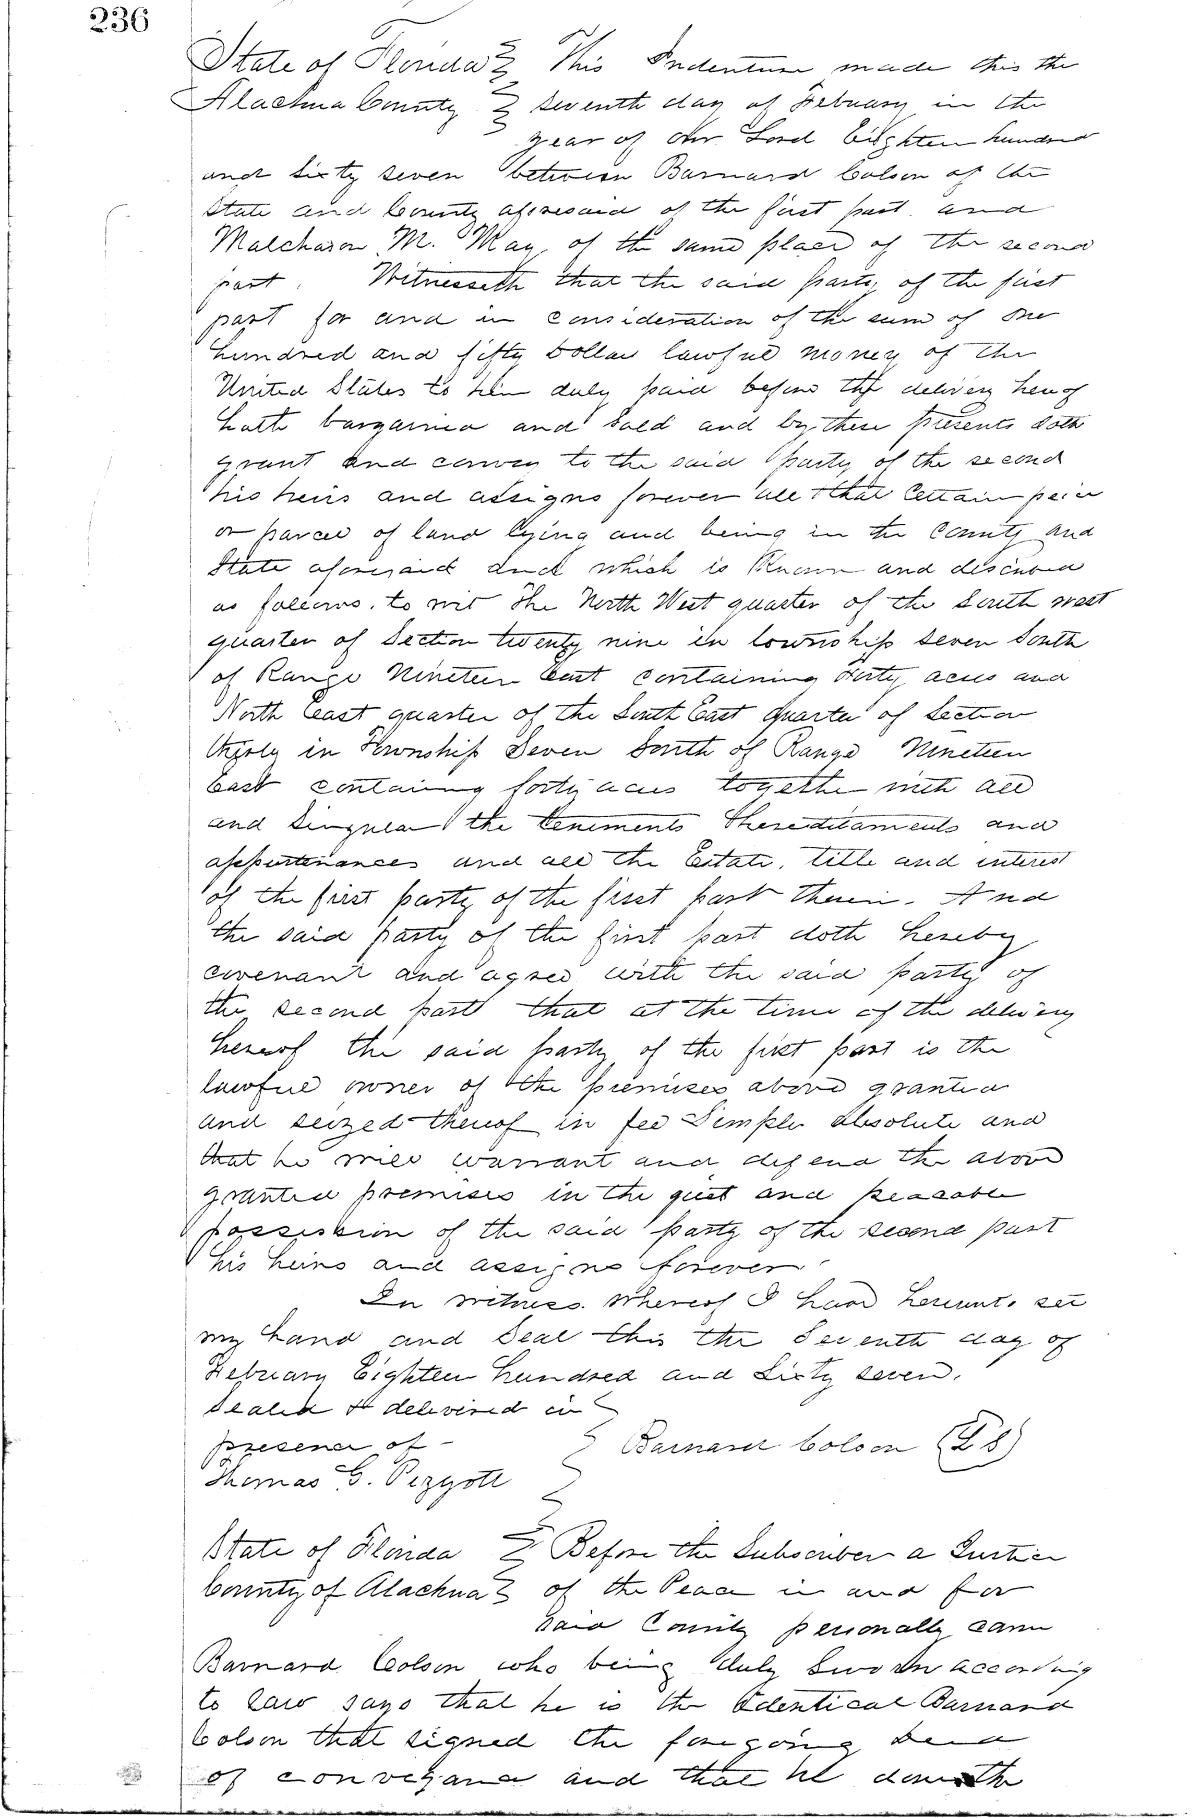 236
State of Florida } This Indenture made this the
Alachua County } Seventh day of Febuary in the
year of our Lord Eighteen hundred
and Sixty seven between Barnard Colson of the
State and County aforesaid of the first part and
Malcharon M. May, of the same place of the second
part. Witnesseth that the said party of the first
part for and in consideration of the sum of One
hundred and fifty Dollars lawful money of the
United States to him duly paid before the delivery hereof
hath bargained and sold and by these presents doth
grant and convey to the said party of the second
his heirs and assigns forever all that Certain peice
or parcel of land lying and being in the County and
State aforesaid and which is Known and described
as follows. to wit The North West quarter of the South west
quarter of Section twenty nine in township Seven South
of Range Nineteen East containing Forty acres and
North East quarter of the South East quarter of Section
thirty in Township Seven South of Range Nineteen
East containing forty acres together with all
and Singular the tenements Thereditaments and
appurtenances and all the Estate, title and interest
of the first party of the first part therein. And
the said party of the first part doth hereby
covenant and agree with the said party of
the second part that at the time of the delivery
hereof the said party of the first part is the
lawful owner of the premises above granted
and seized thereof in fee Simple absolute and
that he will warrant and defend the above
granted premises in the quiet and peacable
possession of the said party of the second part
his heirs and assigns forever.
In witness Whereof I have hereunto set
my hand and Seal this the Seventh day of
Febuary Eighteen hundred and Sixty seven.
Sealed & delivered in
presence of - } Barnard Colson (L S)
Thomas G.
State of Florida } Before the Subscriber a Justice
County of Alachua } of the Peace in and for
said County personally came
Barnard Colson who being duly Sworn according
to law says that he is the Identical Barnard
Colson that signed the foregoing deed
of conveyance and that he done the